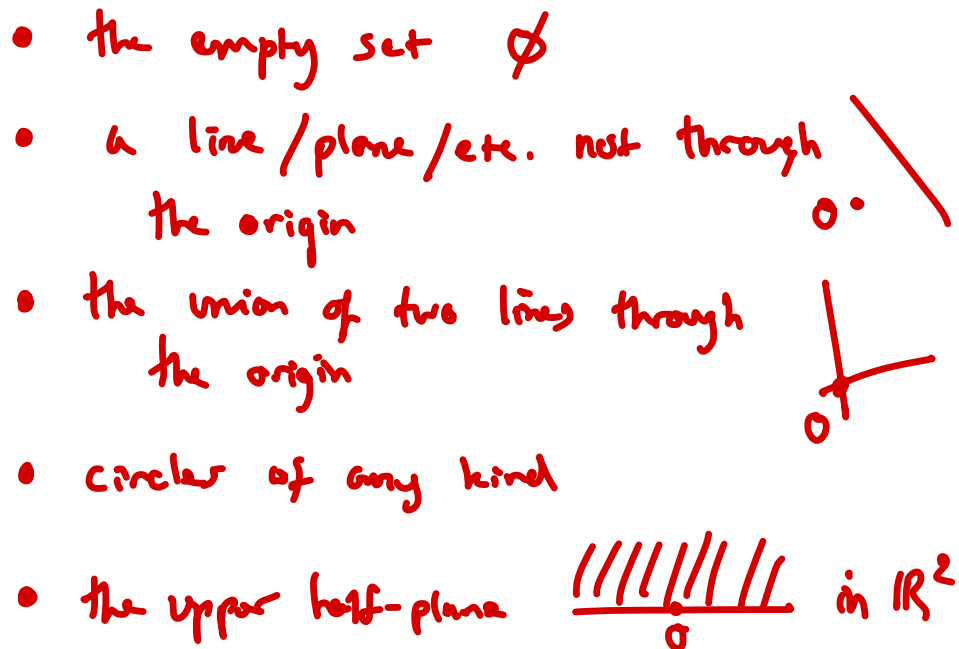 • the empty set ∅
• a line/plane/etc. not through
the origin
0
• the union of two lines through
the origin
0
• circles of any kind
• the upper half-plane in ℝ²
0